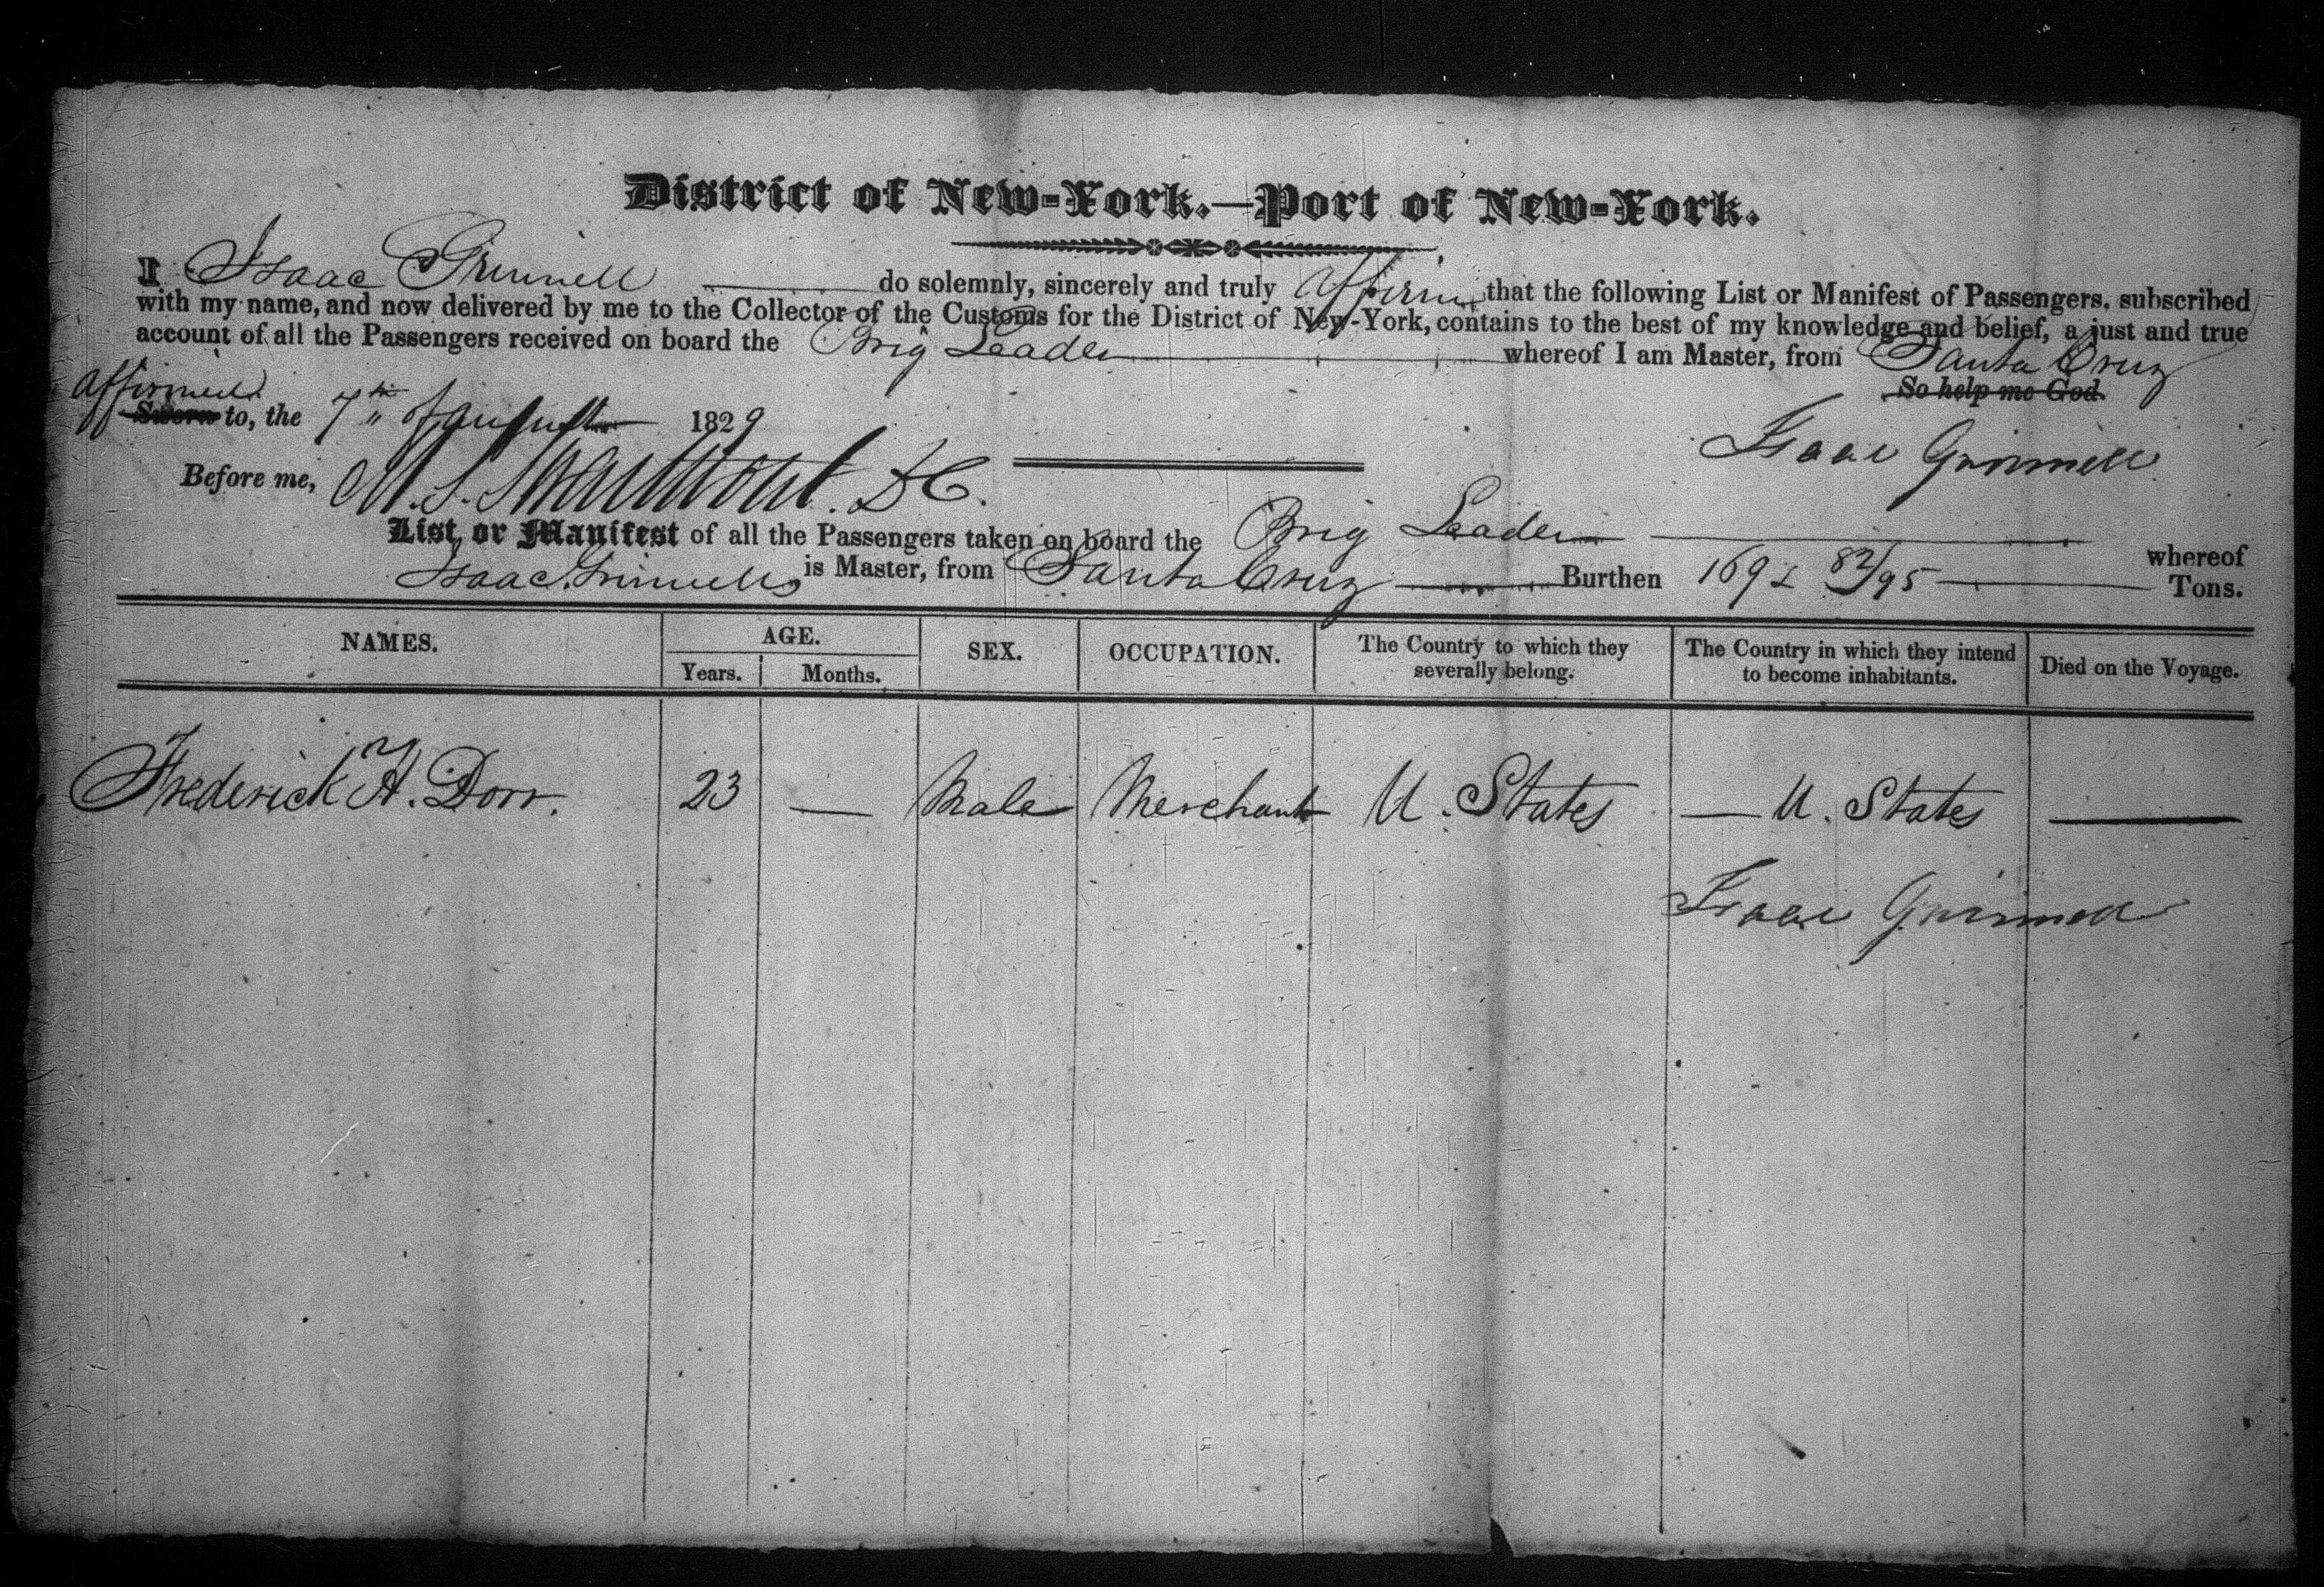 District of New-York.—Port of New-York.
I Isaac Grinnell do solemnly, sincerely and truly affirm that the following List or Manifest of Passengers, subscribed
with my name, and now delivered by me to the Collector of the Customs for the District of New-York, contains to the best of my knowledge and belief, a just and true
account of all the Passengers received on board the Brig Leader whereof I am Master, from Santa Cruz
So help me God.
affirmed
Sworn to, the 7th of August 1829
Isaac Grinnell
Before me, M. S. Swartwout. DC.
List, or Manifest of all the Passengers taken on board the Brig Leader whereof
Isaac Grinnell is Master, from Santa Cruz Burthen 169 82/95 Tons.
NAMES. AGE. SEX. OCCUPATION. The Country to which they severally belong. The Country in which they intend to become inhabitants. Died on the Voyage.
Years. Months.
Frederick H. Dorr. 23 — Male Merchant U. States — U. States —
Isaac Grinnell